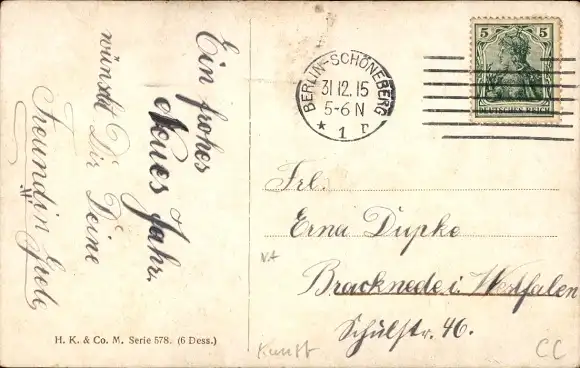 Ein frohes
Neues Jahr.
wünscht Dir Deine
Freundin Grete
H. K. & Co. M. Serie 578. (6 Dess.)
BERLIN-SCHÖNEBERG
31.12.15
5-6 N
* 1 n
5 5
DEUTSCHES REICH
Frl.
Erna Dupke
Bracknede i. Westfalen
Schulstr. 46.
v.t
Kunst
CC